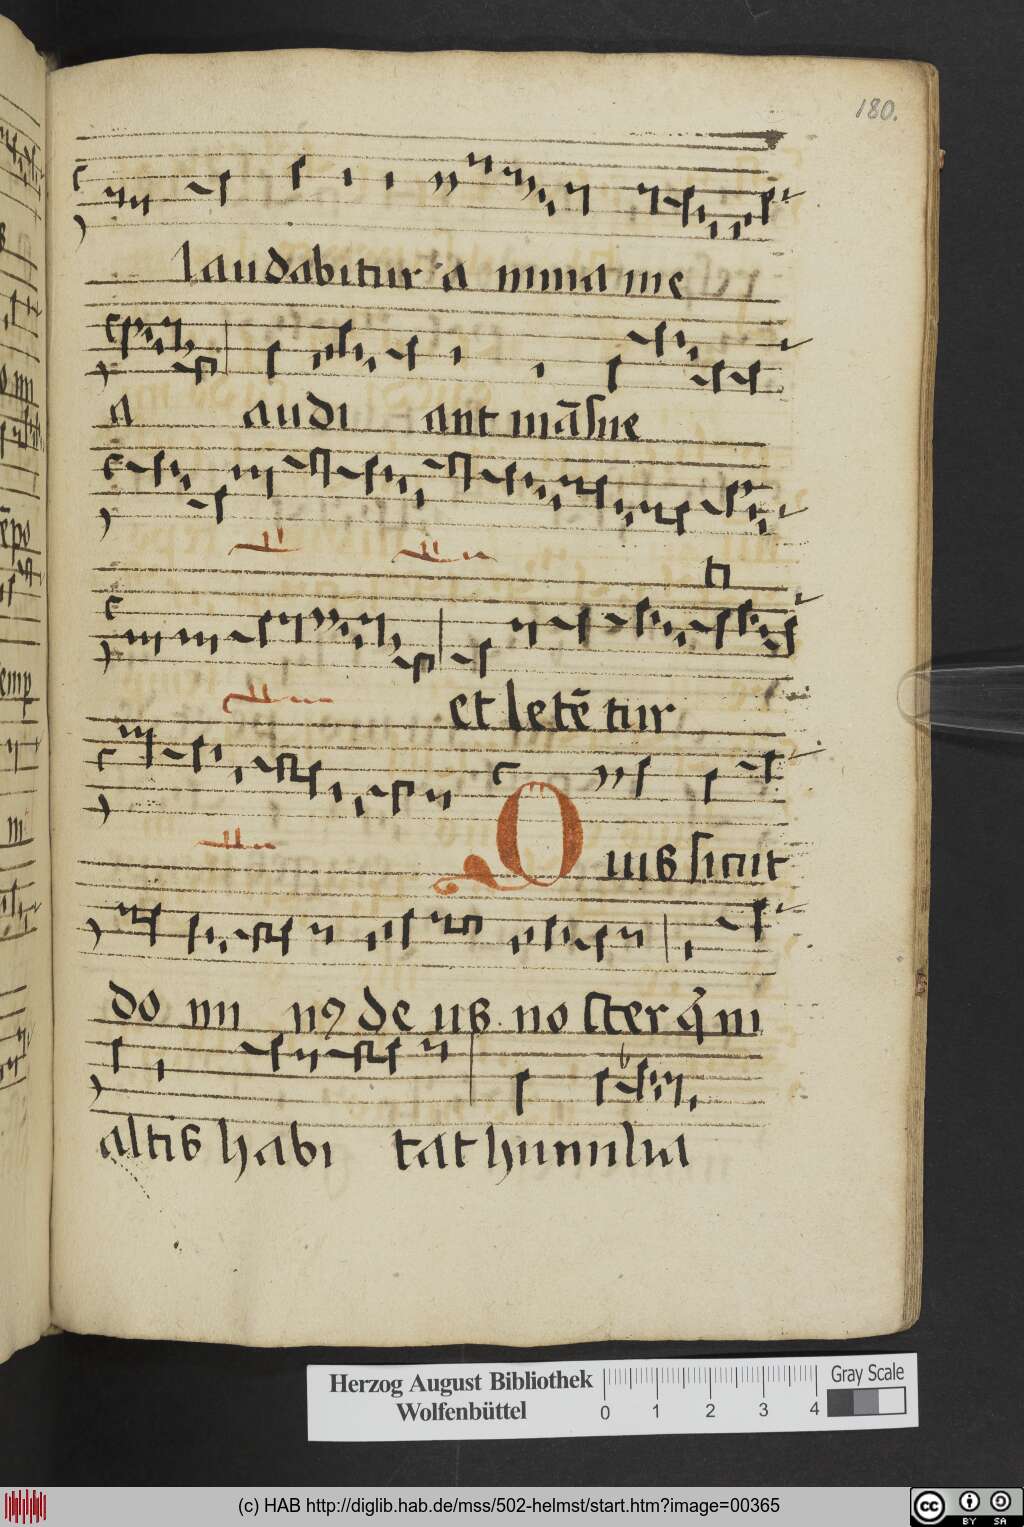 180.
laudabitur a nima me
a audi ant mãsue
et letẽ tur
Quis sicut
do mi nꝰ de us no ster q̇ in
altis habi tat humilia
Herzog August Bibliothek
Wolfenbüttel
0 1 2 3 4
Gray Scale
(c) HAB http://diglib.hab.de/mss/502-helmst/start.htm?image=00365
cc BY SA